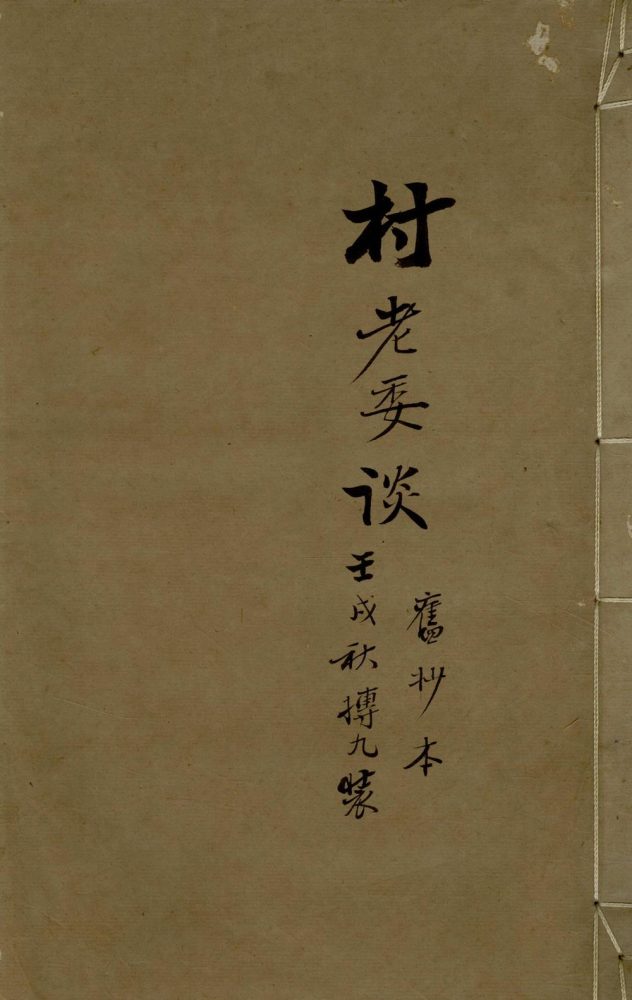 村老委谈
舊抄本
壬戌秋摶九裝